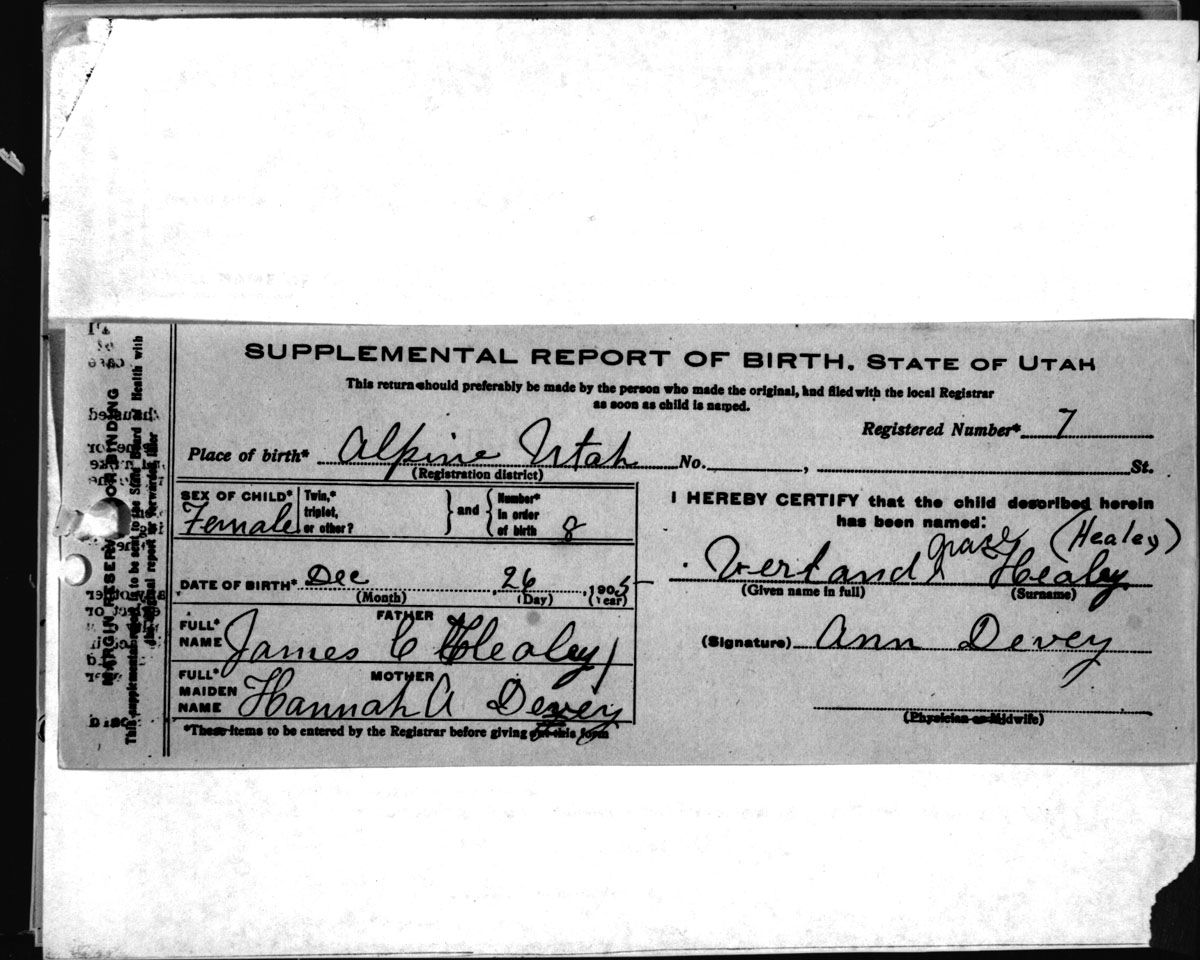 SUPPLEMENTAL REPORT OF BIRTH. STATE OF UTAH
This return should preferably be made by the person who made the original, and filed with the local Registrar
as soon as child is named.
Registered Number* 7
Place of birth* Alpine Utah No. , St.
(Registration district)
SEX OF CHILD* Female
Twin,* triplet, or other?
and
Number* in order of birth 8
DATE OF BIRTH* Dec 26, 1905
(Month) (Day) (Year)
FATHER
FULL* NAME James C Healey
MOTHER
FULL* MAIDEN NAME Hannah A Devey
*These items to be entered by the Registrar before giving out this form
I HEREBY CERTIFY that the child described herein
has been named:
(Healey)
Healey
(Given name in full) (Surname)
(Signature) Ann Devey
(Physician or Midwife)
MARGIN RESERVED FOR BINDING